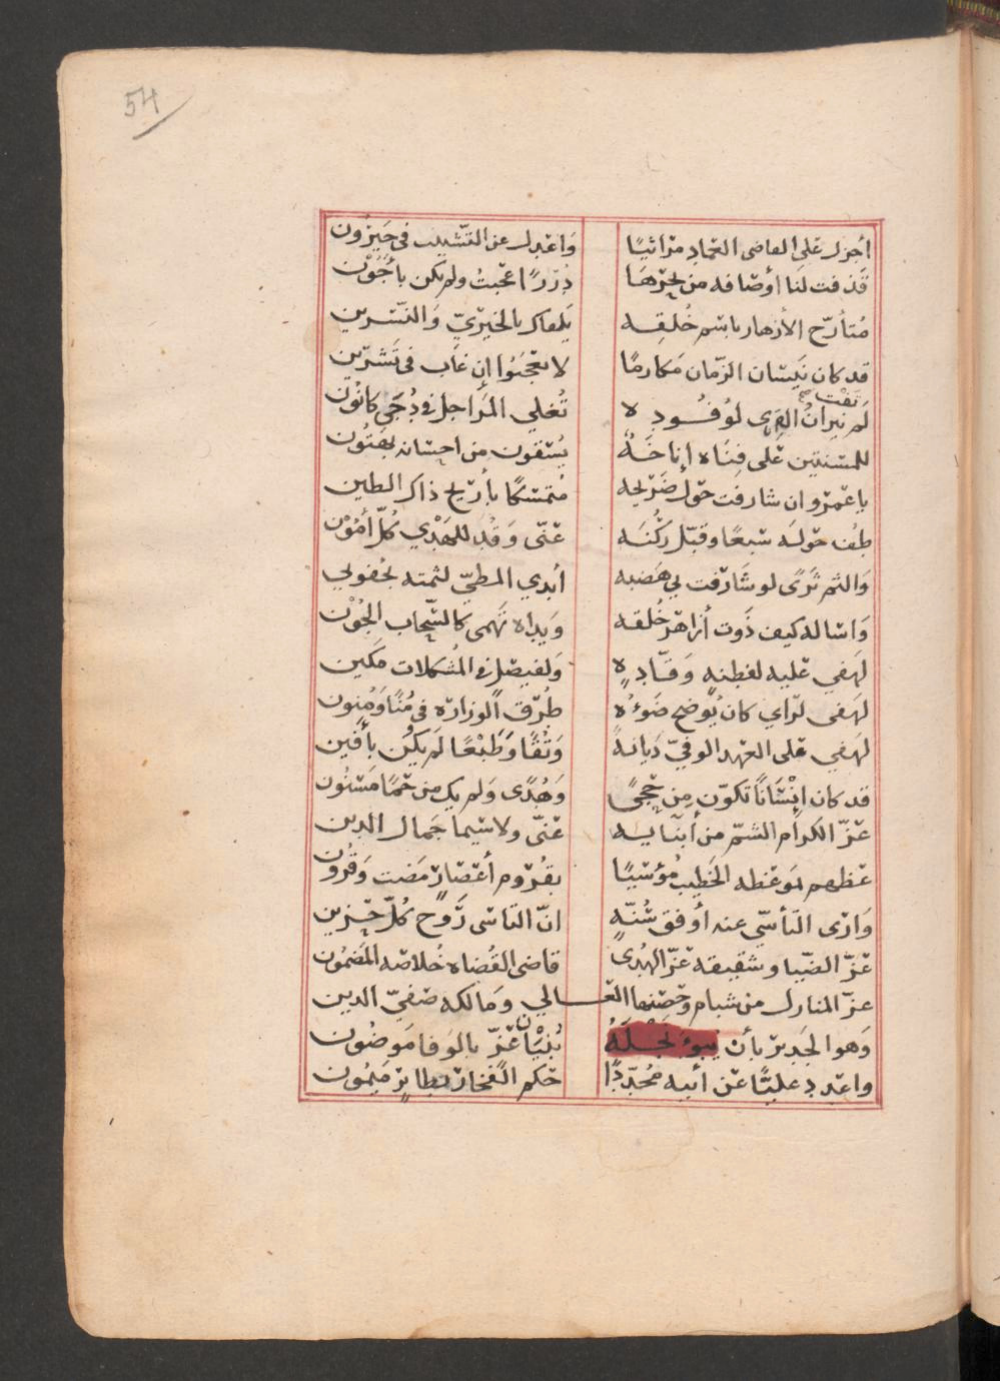 54
أجزل على القاضي العماد مراثيًا واعدل عن التشبيب في جيرون
قذفت لنا أوصافه من بحرها دررًا عجبت ولم يكن بأجون
متأرّج الأزهار باسم خلقه يلقاك بالخيريّ والنسرين
قد كان نيسان الزمان مكارمًا لا تعجبوا إن غاب في تشرين
كم نيران القرى لوفوده تغلي المراجل في دجى كانون
للمسنتين على فناه إناخة يسقون من احسانه بهتون
يا عمرو ان شارفت حول ضريحه متمسّكًا بأريج ذاك الطين
طف حوله سبعًا وقبّل ركنه عنّي وقد للهدي كلّ أمون
والثم ثرى لو شارفت بي هضبه أيدي المطيّ لثمته بجفوني
واسأله كيف ذوت أزاهر خلقه ويداه تهمى كالسّحاب الجون
لهفي عليه لفطنةٍ وقّادةٍ ولفيصل في المشكلات مكين
لهفي لرأي كان يوضح ضوءه طرق الوزاره في منًا ومنون
لهفي على العهد الوفيّ ديانةً وتقًا وطبعًا لم يكن بأفين
قد كان إنسانًا تكوّن من حجىً وهدًى ولم يك من حمًا مسنون
عزّ الكرام الشمّ من أبنائه عنّي ولا سيما جمال الدين
عظهم بموعظه الخطيب مؤسّيًا بقروم أعصار مضت وقرون
وارى التأسّي عنه أوفق سنّةٍ انّ التاسي روح كلّ حزين
عزّ الضّيا وشقيقه عزّ الهدى قاضي القضاه خلاصه المضمون
عزّ المنازل من شبام وحصنها العالي ومالكه صفيّ الدين
وهو الجدير بأن يبوء لجله بنيان عزّ بالوفا موضون
واعدد عليًّا عن أبيه مجدّدًا حكم الفخار بطاير ميمون